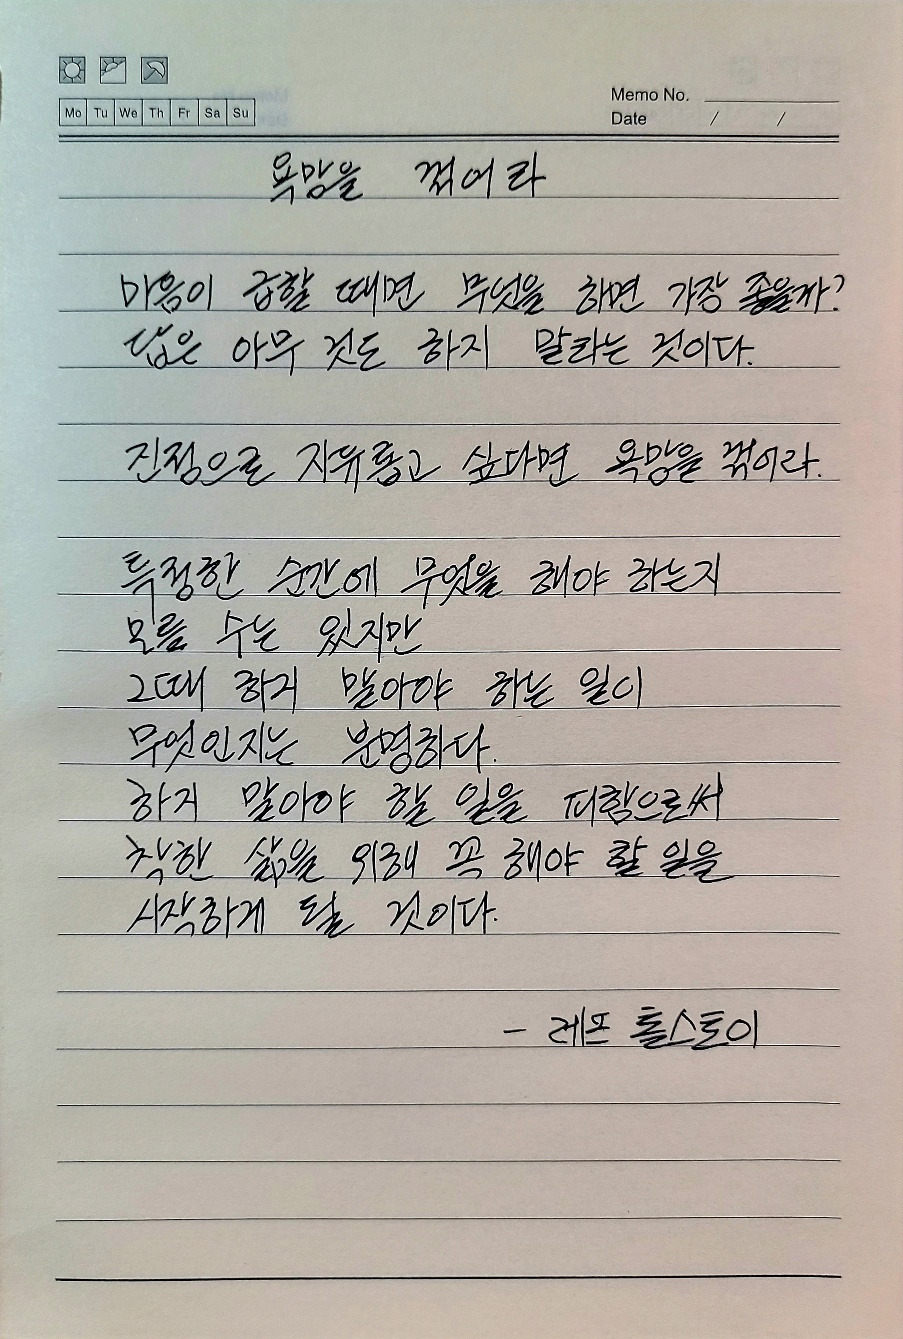 Memo No.
Mo Tu We Th Fr Sa Su
Date / /
욕망을 꺾어라
마음이 급할 때면 무엇을 하면 가장 좋을까?
답은 아무 것도 하지 말라는 것이다.
진정으로 자유롭고 싶다면 욕망을 꺾어라.
특정한 순간에 무엇을 해야 하는지
모를 수는 있지만
그때 하지 말아야 하는 일이
무엇인지는 분명하다.
하지 말아야 할 일을 피함으로써
착한 삶을 위해 꼭 해야 할 일을
시작하게 될 것이다.
- 레프 톨스토이